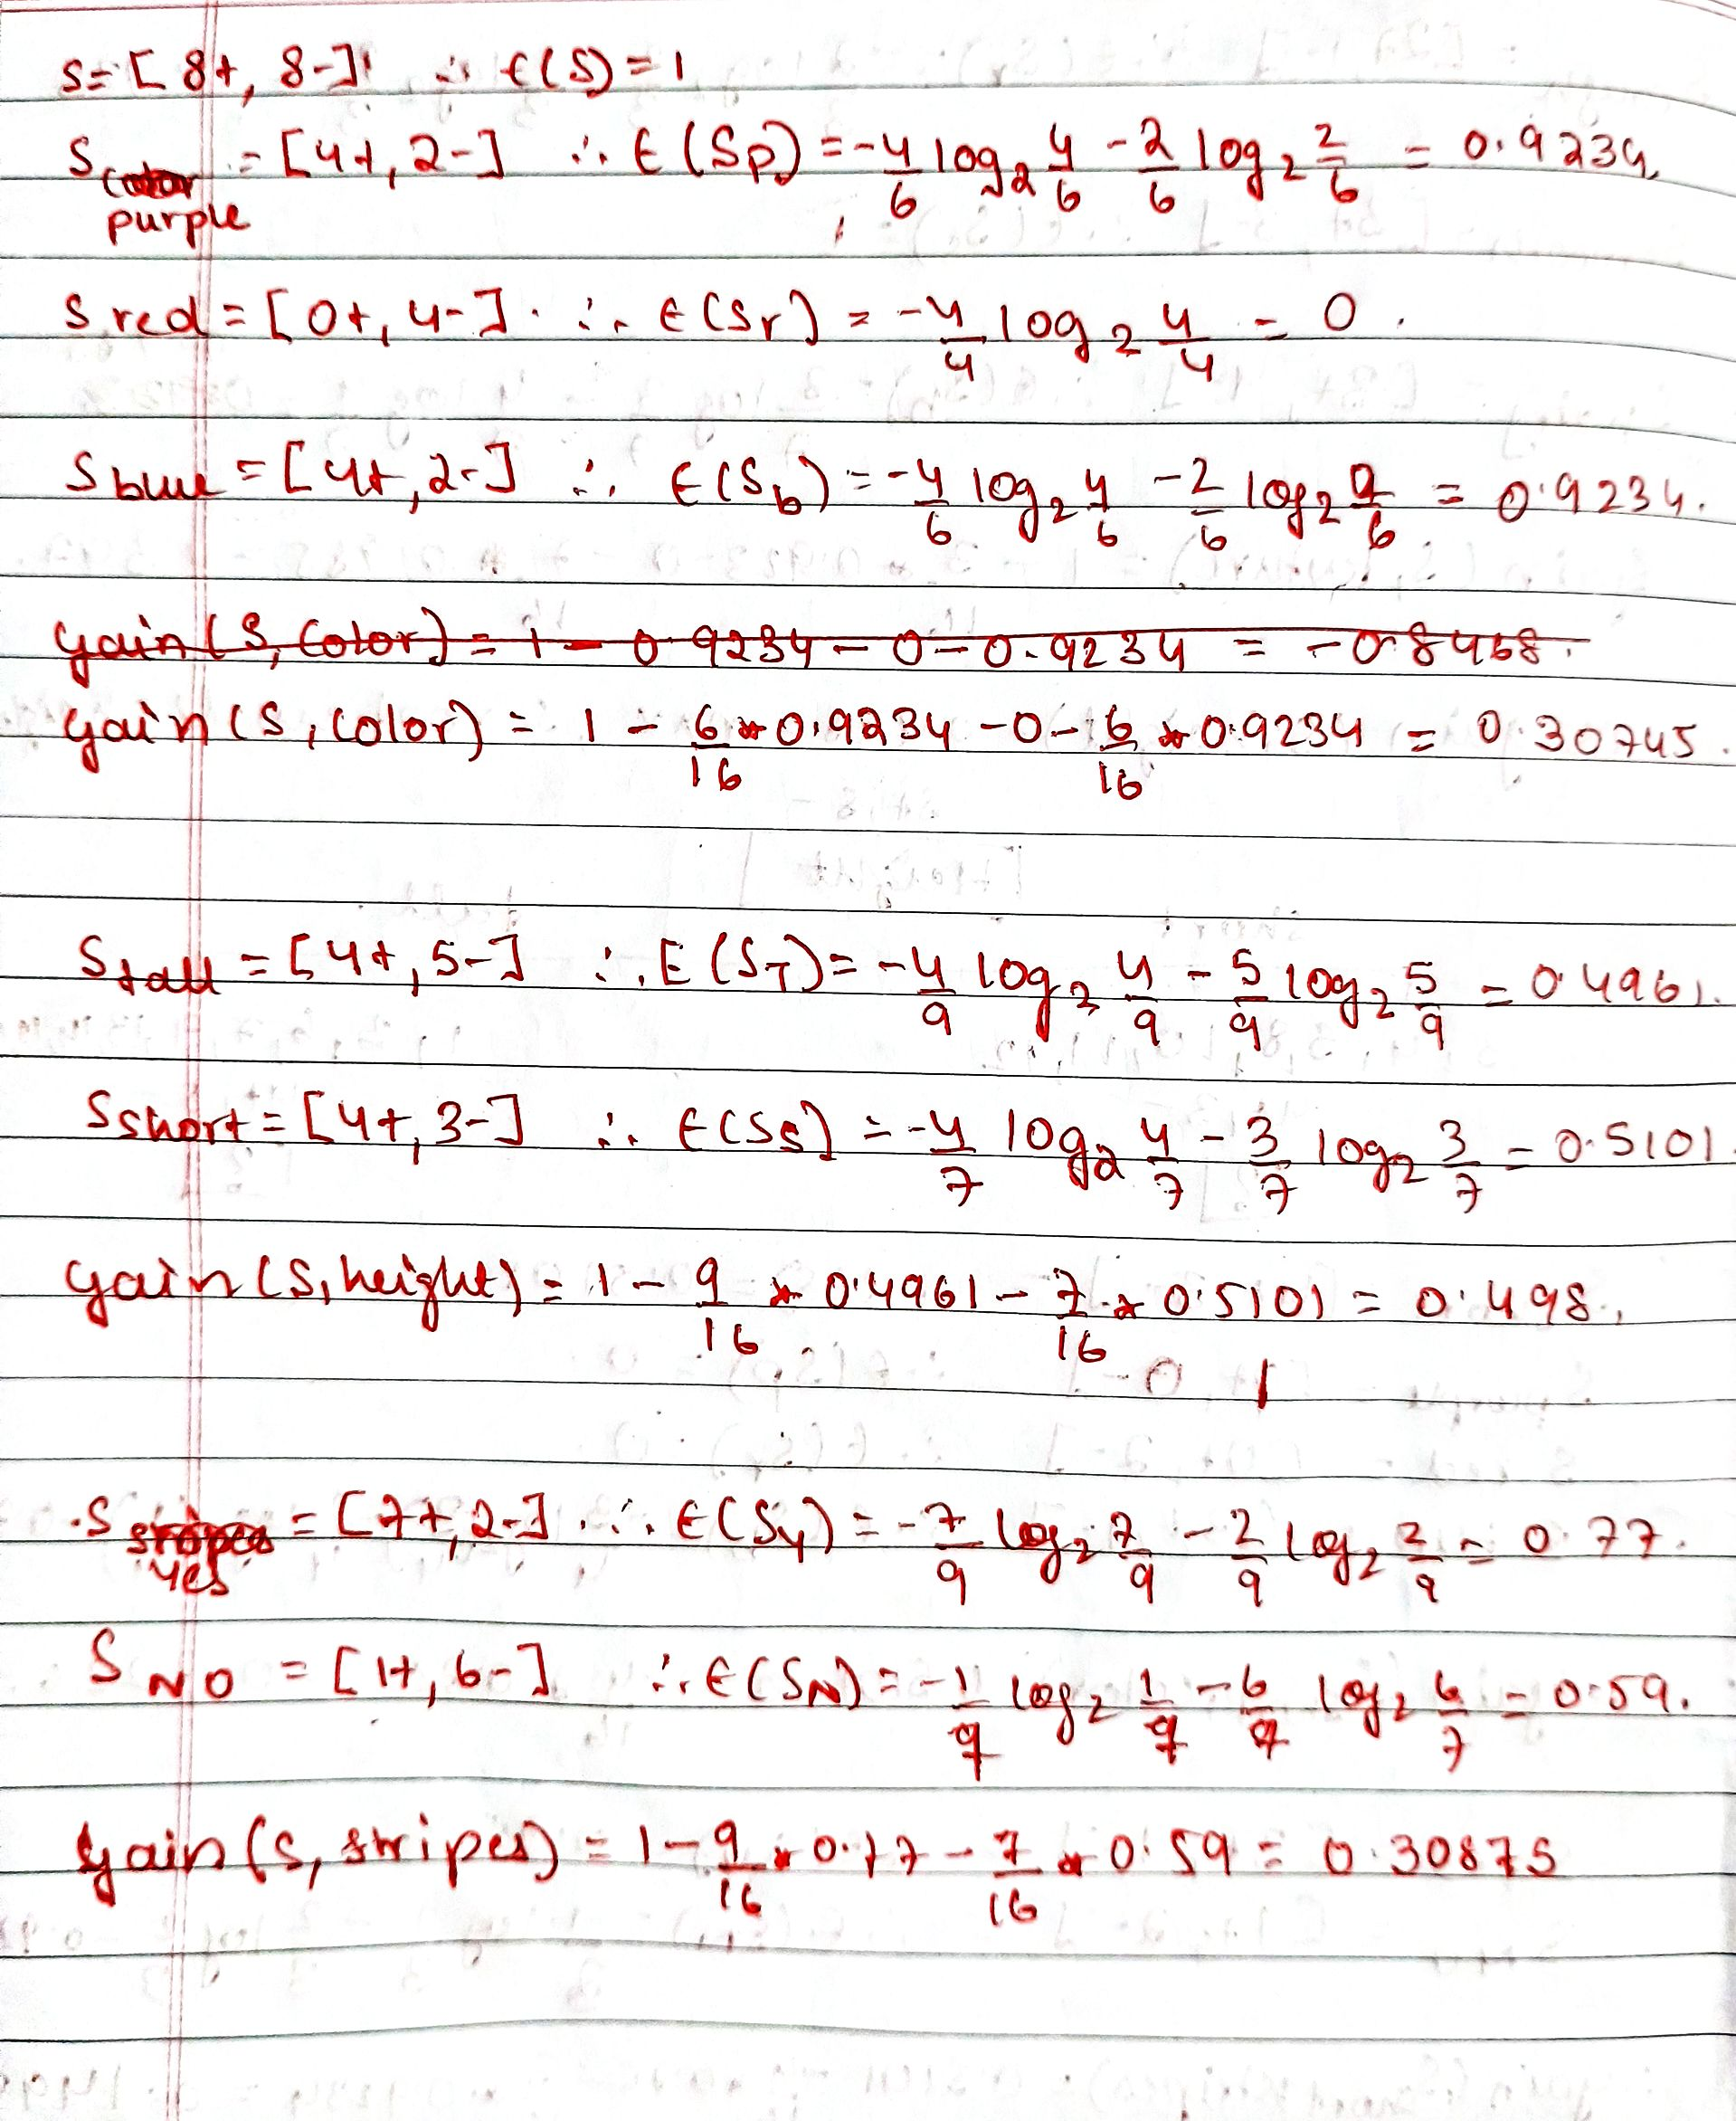 S = [8+, 8-] ∴ E(S) = 1
S purple = [4+, 2-] ∴ E(Sp) = -4/6 log2 4/6 - 2/6 log2 2/6 = 0.9234.
S red = [0+, 4-] ∴ E(Sr) = -4/4 log2 4/4 = 0.
S blue = [4+, 2-] ∴ E(Sb) = -4/6 log2 4/6 - 2/6 log2 2/6 = 0.9234.
gain(S, Color) = 1 - 0.9234 - 0 - 0.9234 = -0.8468.
gain(S, color) = 1 - 6/16 * 0.9234 - 0 - 6/16 * 0.9234 = 0.30745.
S tall = [4+, 5-] ∴ E(ST) = -4/9 log2 4/9 - 5/9 log2 5/9 = 0.4961.
S short = [4+, 3-] ∴ E(Ss) = -4/7 log2 4/7 - 3/7 log2 3/7 = 0.5101.
gain(S, height) = 1 - 9/16 * 0.4961 - 7/16 * 0.5101 = 0.498.
S Yes = [7+, 2-] ∴ E(Sy) = -7/9 log2 7/9 - 2/9 log2 2/9 = 0.77.
S NO = [1+, 6-] ∴ E(SN) = -1/7 log2 1/7 - 6/7 log2 6/7 = 0.59.
gain(S, stripes) = 1 - 9/16 * 0.77 - 7/16 * 0.59 = 0.30875